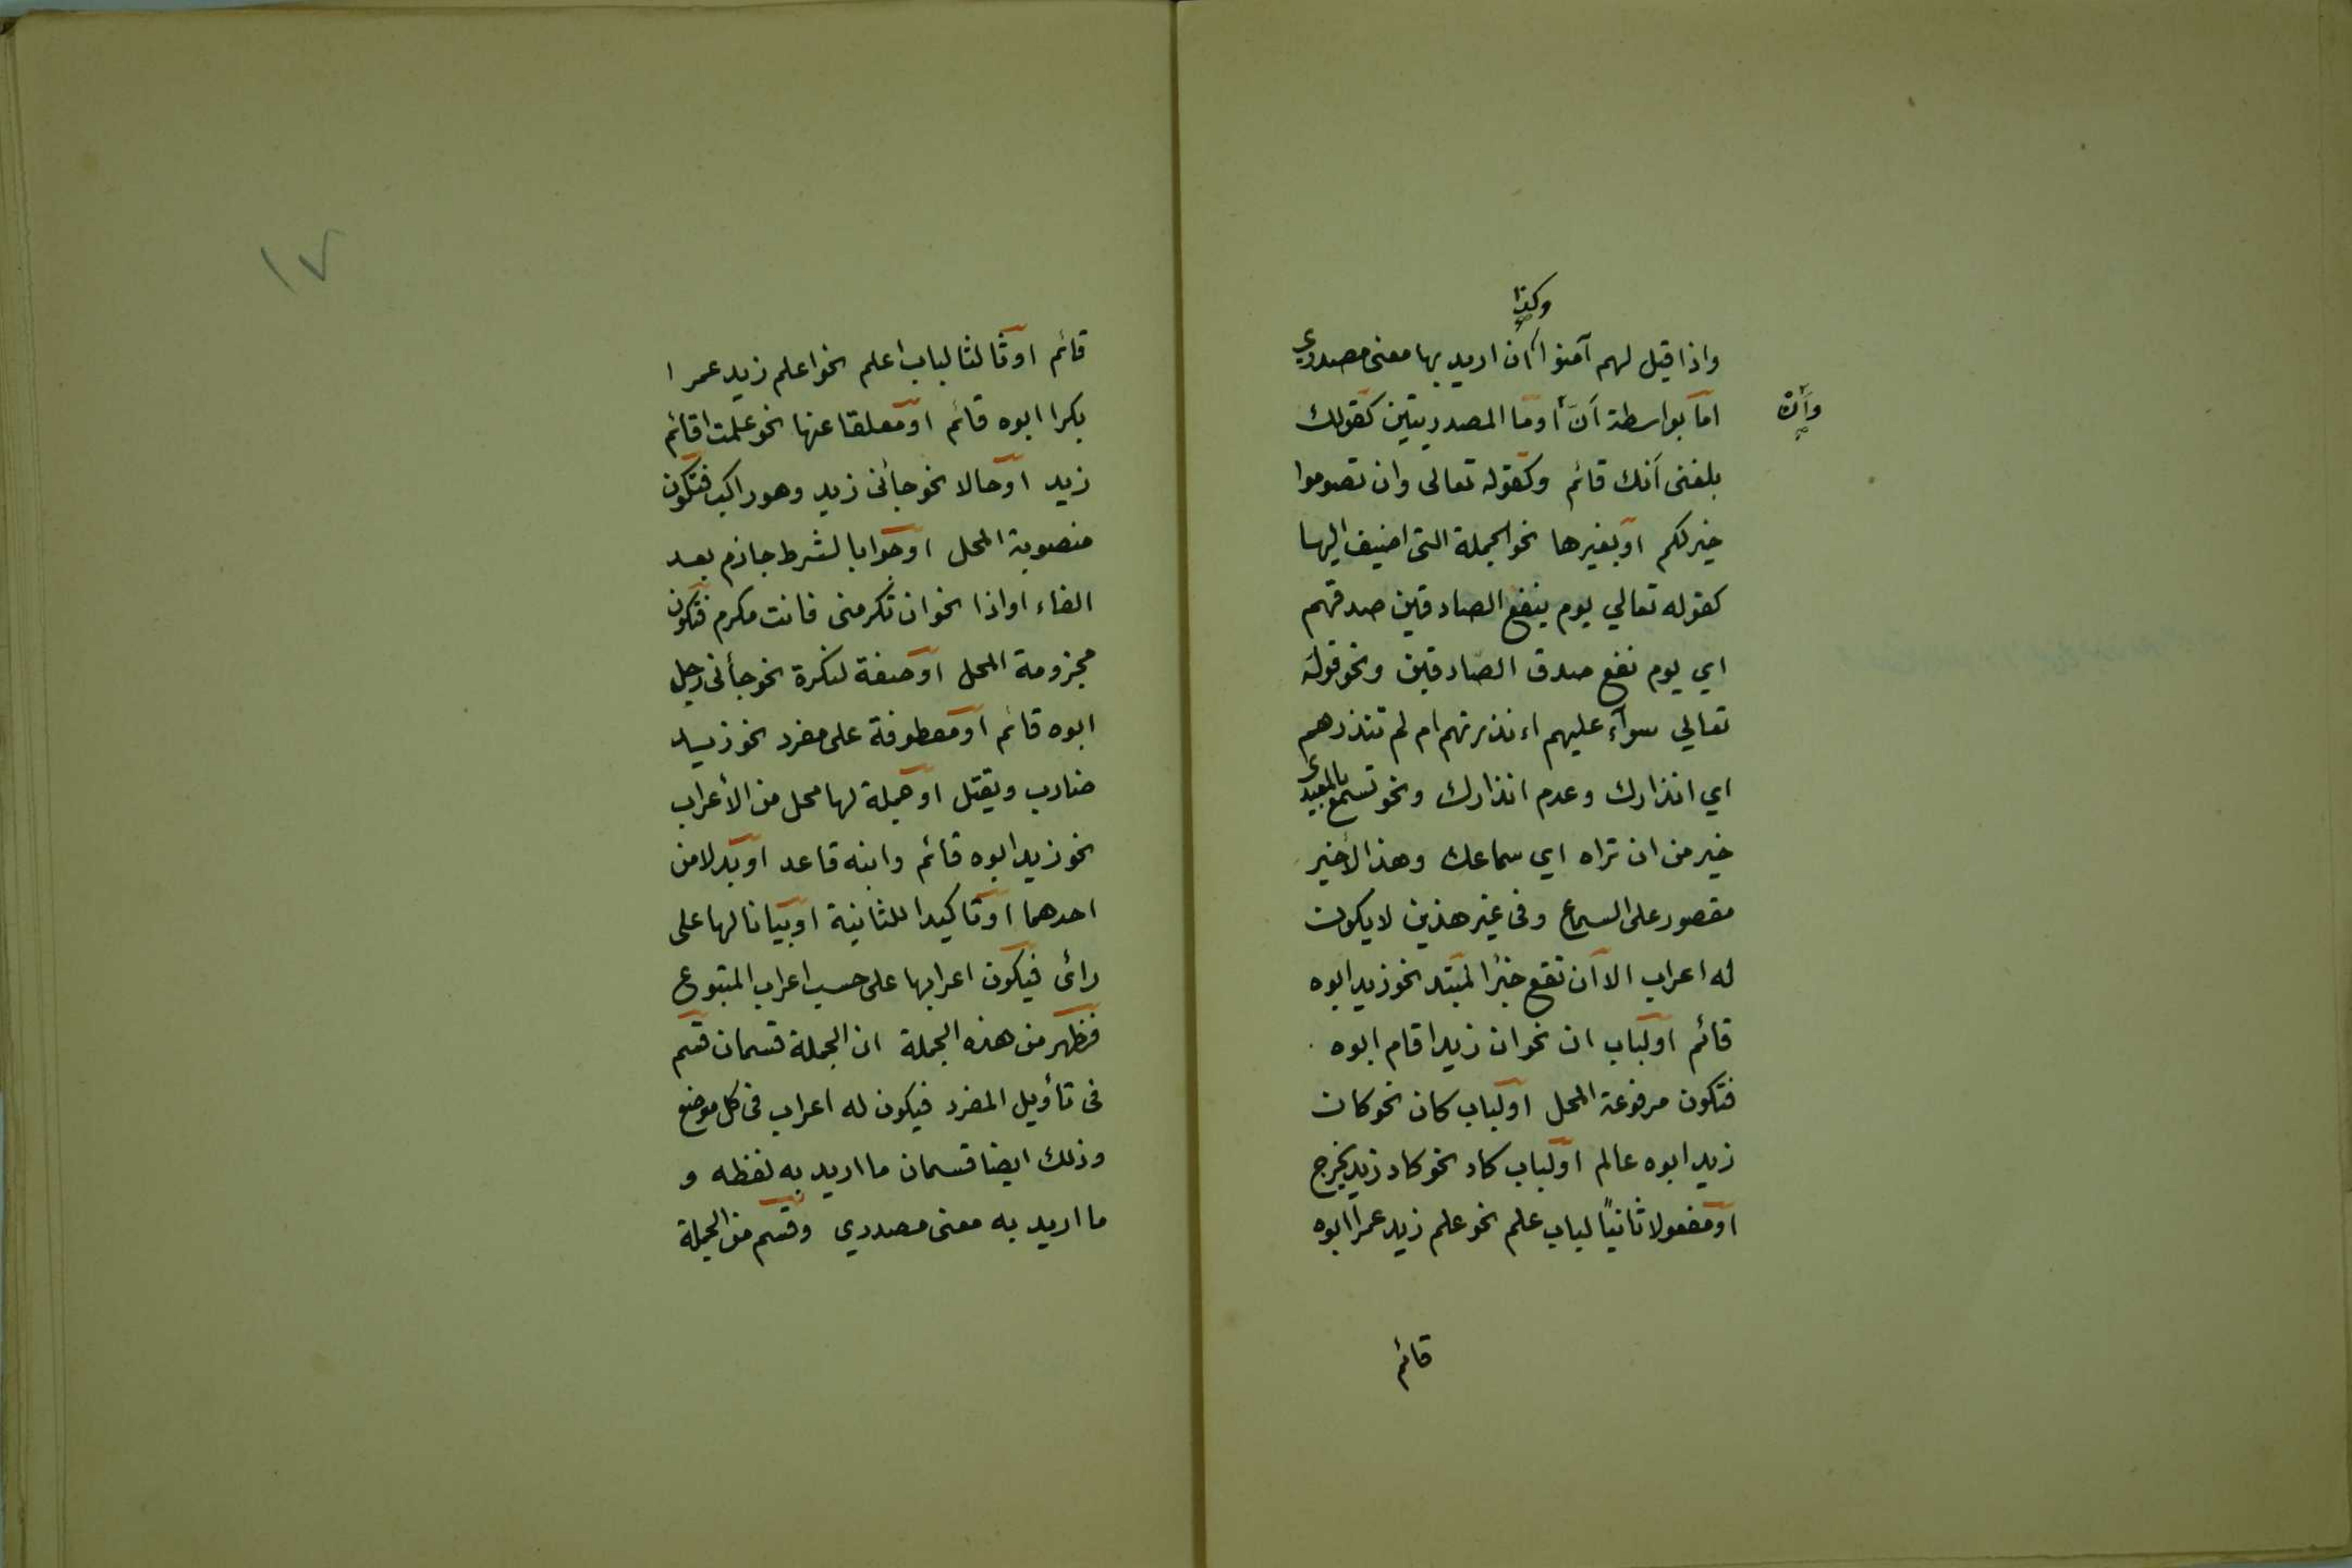 وكذا
واذا قيل لهم آمنوا ان اريد بها معنى مصدري
اما بواسطة أنّ أو ما المصدريتين كقولك
وأن
بلغنى أنك قائم وكقوله تعالى وان تصوموا
خير لكم او بغيرها نحو الجملة التى اضيف اليها
كقوله تعالي يوم ينفع الصادقين صدقهم
اي يوم نفع صدق الصادقين ونحو قوله
تعالي سوآء عليهم اءنذرتهم ام لم تنذرهم
اي انذارك وعدم انذارك ونحو تسمع بالمعيدى
خير من ان تراه اي سماعك وهذا الأخير
مقصور على السماع وفى غير هذين لا يكون
له اعراب الا أن تقع خبرًا لمبتد نحو زيد ابوه
قائم او لباب ان نحو ان زيدا قام ابوه
فتكون مرفوعة المحل او لباب كان نحو كان
زيد ابوه عالم او لباب كاد نحو كاد زيد يخرج
او مفعولا ثانيًا لباب علم نحو علم زيد عمرا ابوه
قائم
١٧
قائم او ثالثا لباب اعلم نحو اعلم زيد عمرا
بكرا ابوه قائم او معلقا عنها نحو علمت اقائم
زيد او حالا نحو جائنى زيد وهو راكب فتكون
منصوبة المحل او جوابا لشرط جازم بعد
الفاء او اذا نحو ان تكرمنى فانت مكرم فتكون
مجزومة المحل او صفة لنكرة نحو جأنى رجل
ابوه قائم او معطوفة على مفرد نحو زيد
ضارب ويقتل او جملة لها محل من الأعراب
نحو زيد ابوه قائم وابنه قاعد او بدلا من
احدهما او تاكيدا للثانية او بيانا لها على
رائ فيكون اعرابها على حسب اعراب المتبوع
فظهر من هذه الجملة ان الجملة قسمان قسم
فى تأويل المفرد فيكون له اعراب فى كل موضع
وذلك ايضا قسمان ما اريد به لفظه و
ما اريد به معنى مصدري وقسم من الجملة